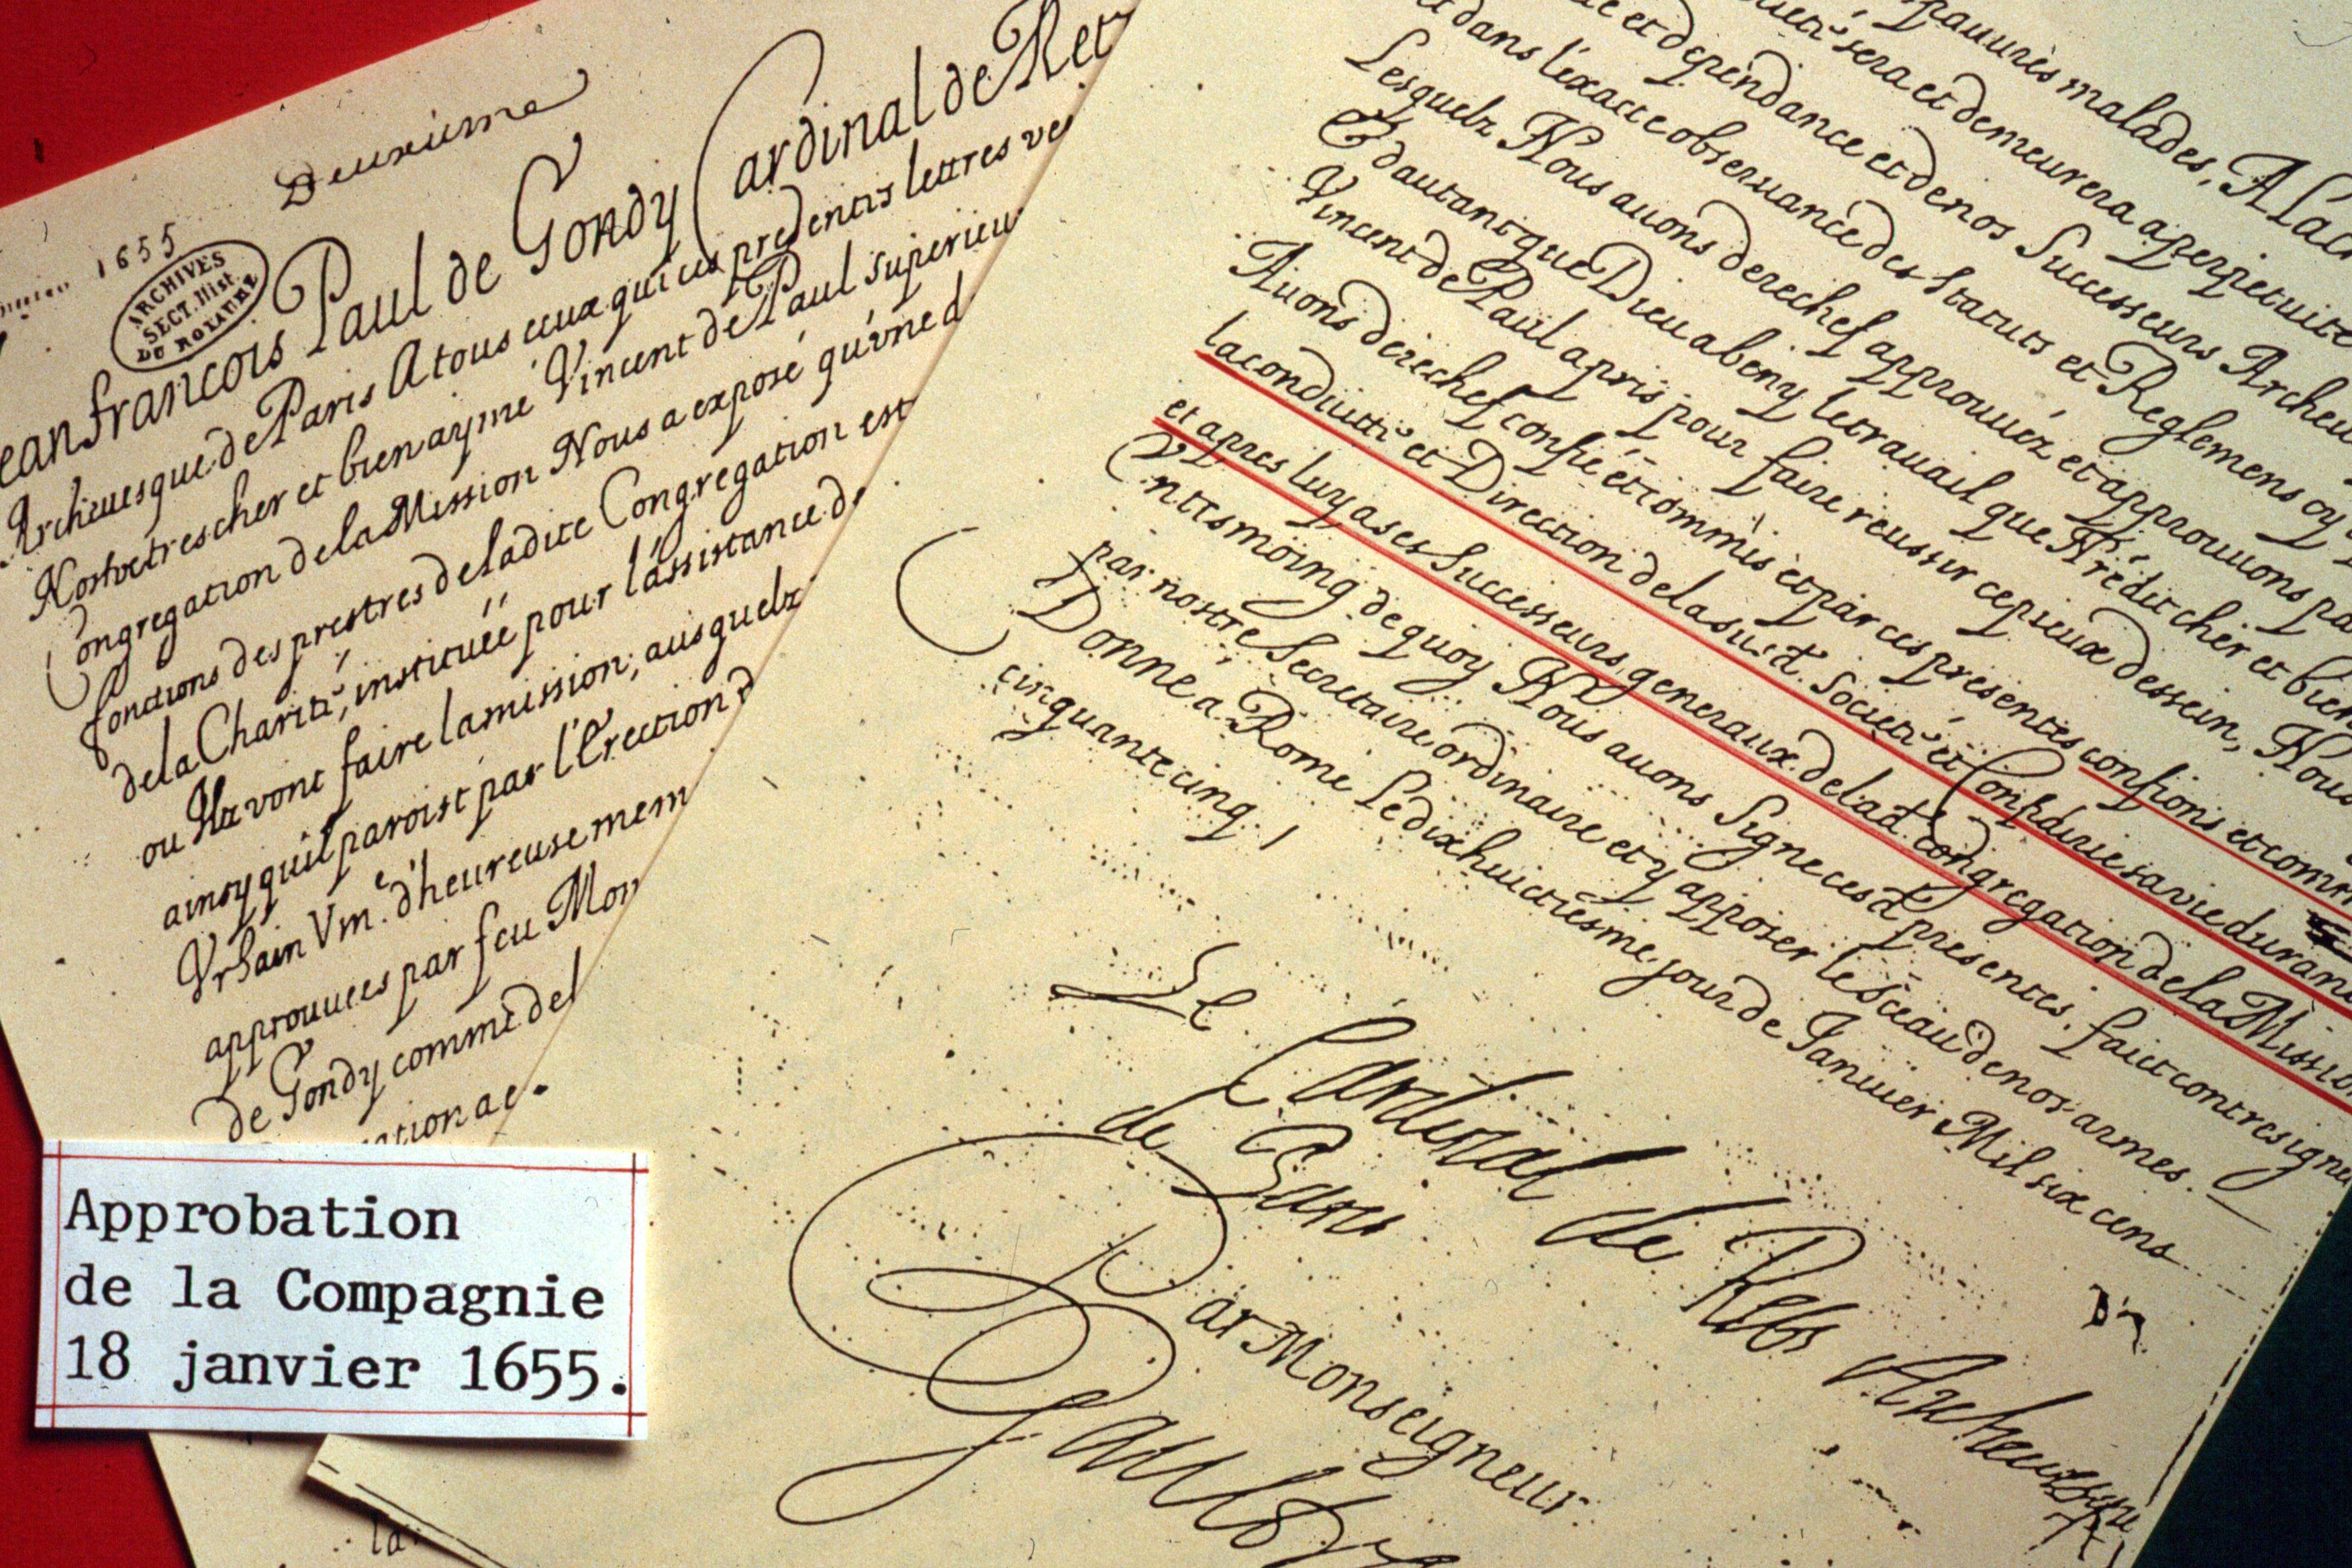 1655
Deuxieme
ARCHIVES
SECT. Hist.
DU ROYAUME
ean francois Paul de Gondy Cardinal de Ret
Archeuesque de Paris A tous ceux qui ces presentes lettres ve
Nostre tres cher et bien aymé Vincent de Paul superieu
Congregation de la Mission Nous a exposé qu'vne d
fonctions des prestres de ladite Congregation est
de la Charité, instituée pour l'assistance de
ou Ilz vont faire la mission, ausquelz
ainsy quil paroist par l'Erection d
Vrbain Vm.e d'heureuse mem
approuuees par feu Mon
de Gondy comme del
ation ae
pauures malades, A la c
sera et demeurera a perpetuité
et dependance et de nos Successeurs Archeu
et dans l'exacte obseruance des statuts et Reglemens cy
Lesquelz Nous auons derechef approuuéz et approuuons pa
Et dautant que Dieu a beny le trauail que N're dit cher et bien
Vincent de Paul a pris pour faire reussir ce pieux dessein, Nous
Auons derechef confié et commis et par ces presentes confions et comm
la conduitte et Direction de la sud. Societé et Confrairie sa vie durant
et apres luy a ses Successeurs generaux de lad. Congregation de la Missio
En tesmoing de quoy Nous auons Signe ces d. presentes, faict contresigne
par nostre Secretaire ordinaire et y apposer le Sceau de nos armes.
Donné a Rome Le dix huictiesme jour de Januier Mil six cens
cinquante cinq.
Le Cardinal de Rets Archeuesque
de Paris
Par Monseigneur
Approbation
de la Compagnie
18 janvier 1655.
la